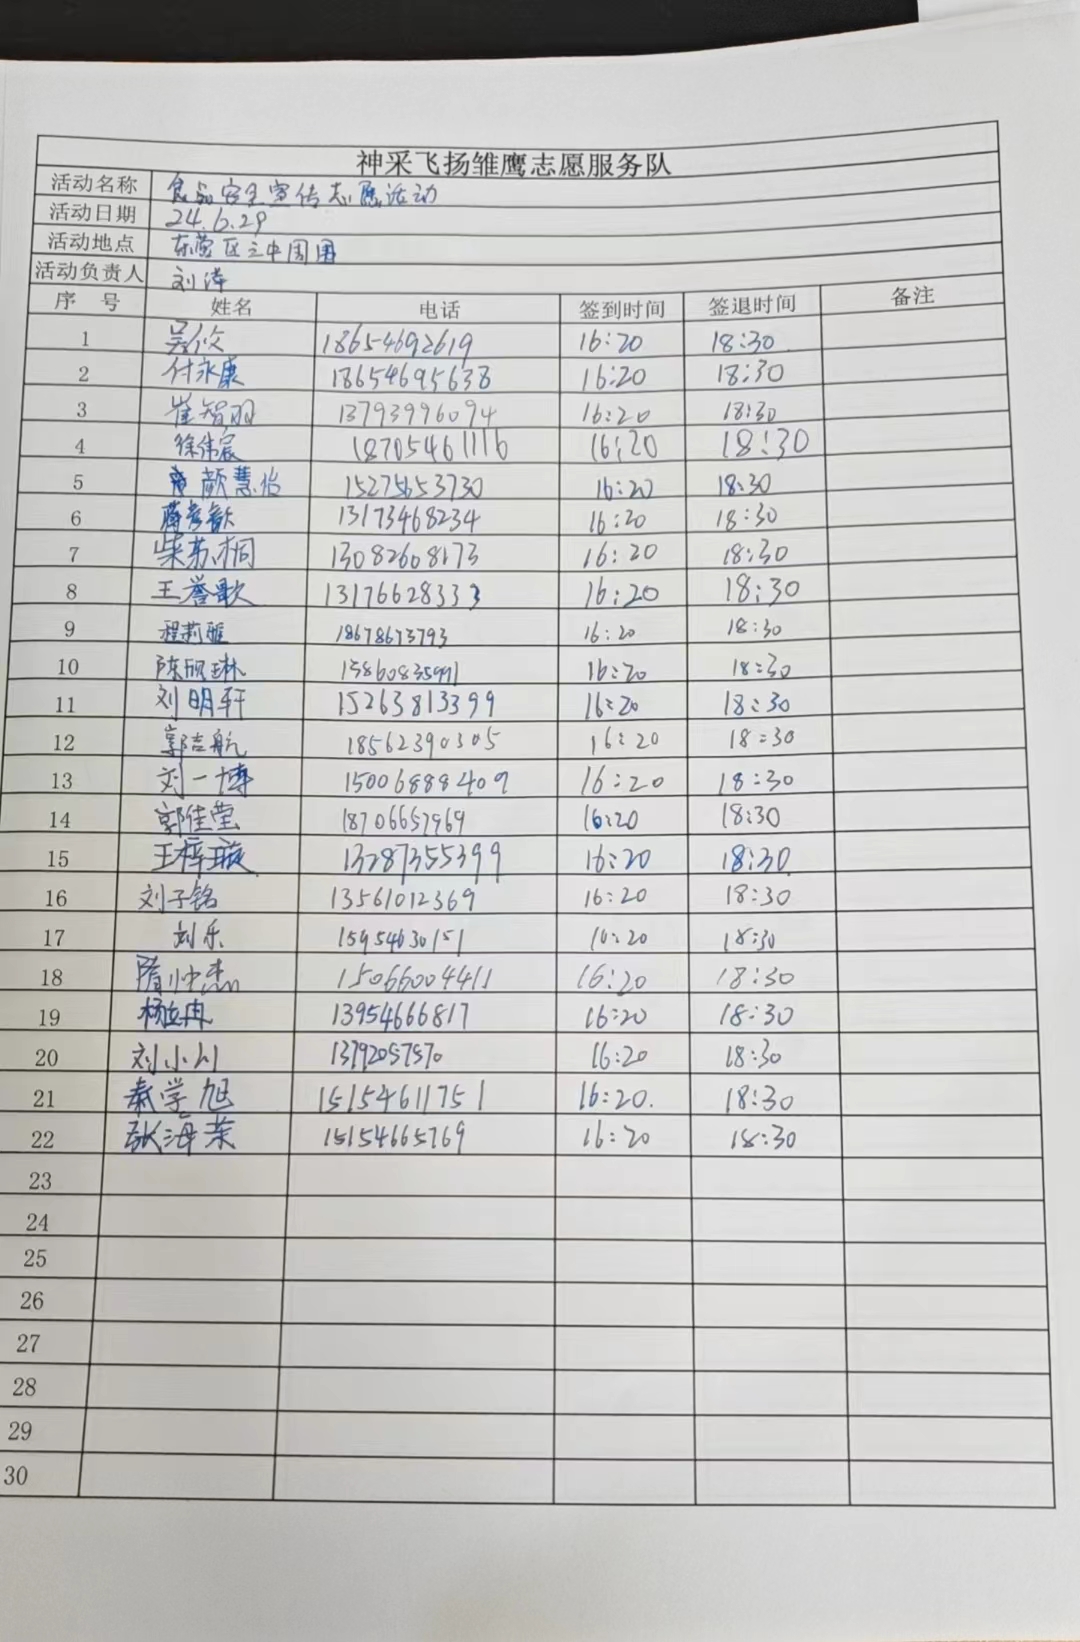 神采飞扬雏鹰志愿服务队
活动名称 食品安全宣传志愿活动
活动日期 24.6.29
活动地点 东营区三中周围
活动负责人 刘涛
序 号 姓名 电话 签到时间 签退时间 备注
1 吴 18654692619 16:20 18:30
2 付永康 18654695638 16:20 18:30
3 崔智羽 13793996094 16:20 18:30
4 徐伟宸 18705461116 16:20 18:30
5 颜慧怡 15275653730 16:20 18:30
6 13173468234 16:20 18:30
7 柴苏桐 13082608173 16:20 18:30
8 王誉歌 13176628333 16:20 18:30
9 程莉雅 18678673793 16:20 18:30
10 陈琳 15860835991 16:20 18:30
11 刘明轩 15263813399 16:20 18:30
12 郭吉航 18562390305 16:20 18:30
13 刘一博 15006888409 16:20 18:30
14 郭佳莹 18706657969 16:20 18:30
15 王梓璇 13287355399 16:20 18:30
16 刘子铭 13561012369 16:20 18:30
17 刘乐 15954630151 16:20 18:30
18 隋帅杰 15066004411 16:20 18:30
19 杨冉 13954666817 16:20 18:30
20 刘小川 13792057570 16:20 18:30
21 秦学旭 15154611751 16:20. 18:30
22 张海荣 15154665769 16:20 18:30
23
24
25
26
27
28
29
30